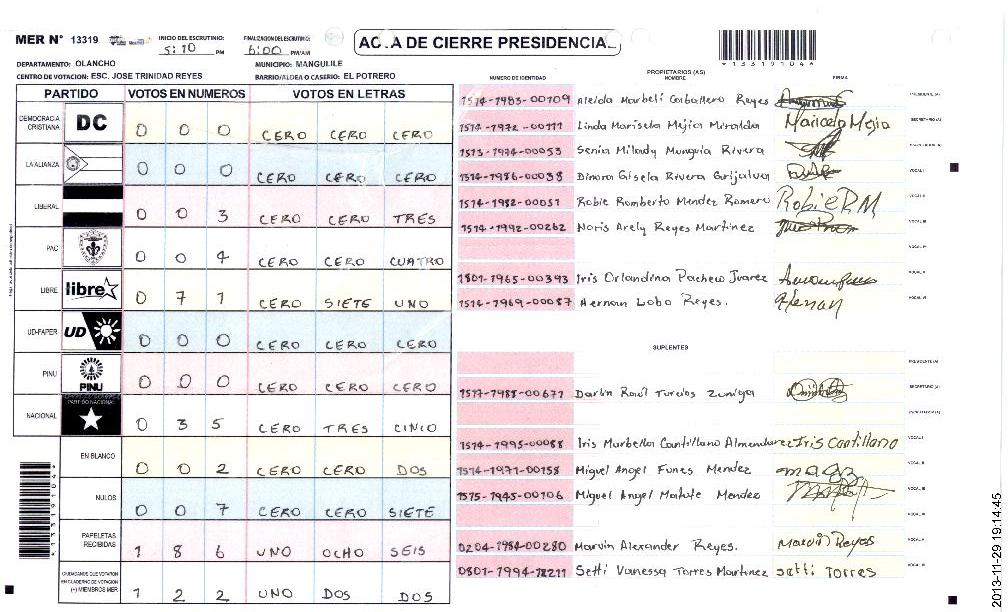 MER N° 13319
INICIO DEL ESCRUTINIO: 5:10 PM
FINALIZACION DEL ESCRUTINIO: 6:00 PM/AM
ACTA DE CIERRE PRESIDENCIAL
*13319104*
DEPARTAMENTO: OLANCHO
MUNICIPIO: MANGULILE
CENTRO DE VOTACION: ESC. JOSE TRINIDAD REYES
BARRIO/ALDEA O CASERIO: EL POTRERO
PARTIDO VOTOS EN NUMEROS VOTOS EN LETRAS
DEMOCRACIA CRISTIANA DC 0 0 0 CERO CERO CERO
LA ALIANZA 0 0 0 CERO CERO CERO
LIBERAL 0 0 3 CERO CERO TRES
PAC 0 0 4 CERO CERO CUATRO
LIBRE libre 0 7 1 CERO SIETE UNO
UD-FAPER UD 0 0 0 CERO CERO CERO
PINU PINU 0 0 0 CERO CERO CERO
NACIONAL PARTIDO NACIONAL 0 3 5 CERO TRES CINCO
EN BLANCO 0 0 2 CERO CERO DOS
NULOS 0 0 7 CERO CERO SIETE
PAPELETAS RECIBIDAS 1 8 6 UNO OCHO SEIS
CIUDADANOS QUE VOTARON EN CUADERNO DE VOTACION (+) MIEMBROS MER 1 2 2 UNO DOS DOS
*13319104*
PROPIETARIOS (AS)
NUMERO DE IDENTIDAD NOMBRE FIRMA
1514-1983-00109 Aleida Marbeli Caballero Reyes PRESIDENTE (A)
1514-1972-00111 Linda Marisela Mejia Miralda Maricela Mejia SECRETARIO (A)
1513-1974-00053 Senia Milady Munguia Rivera
1514-1986-00038 Dinora Gisela Rivera Grijalva VOCAL I
1514-1982-00051 Robie Romberto Mendez Romero Robie R M VOCAL II
1514-1992-00262 Noris Arely Reyes Martinez VOCAL III
VOCAL IV
1801-1965-00393 Iris Orlandina Pacheco Juarez VOCAL V
1514-1969-00087 Hernan Lobo Reyes. Hernan VOCAL VI
SUPLENTES
PRESIDENTE (A)
1517-1988-00677 Darbin Raúl Turcios Zuniga SECRETARIO (A)
1514-1995-00088 Iris Marbella Cantillano Almendarez Iris Cantillano VOCAL I
1514-1971-00158 Miguel Angel Funes Mendez VOCAL II
1515-1945-00106 Miguel Angel Matute Mendez VOCAL III
0204-1984-00280 Marvin Alexander Reyes. Marvin Reyes VOCAL V
Setti Vanessa Torres Martinez Setti Torres VOCAL VI
2013-11-29 19:14:45